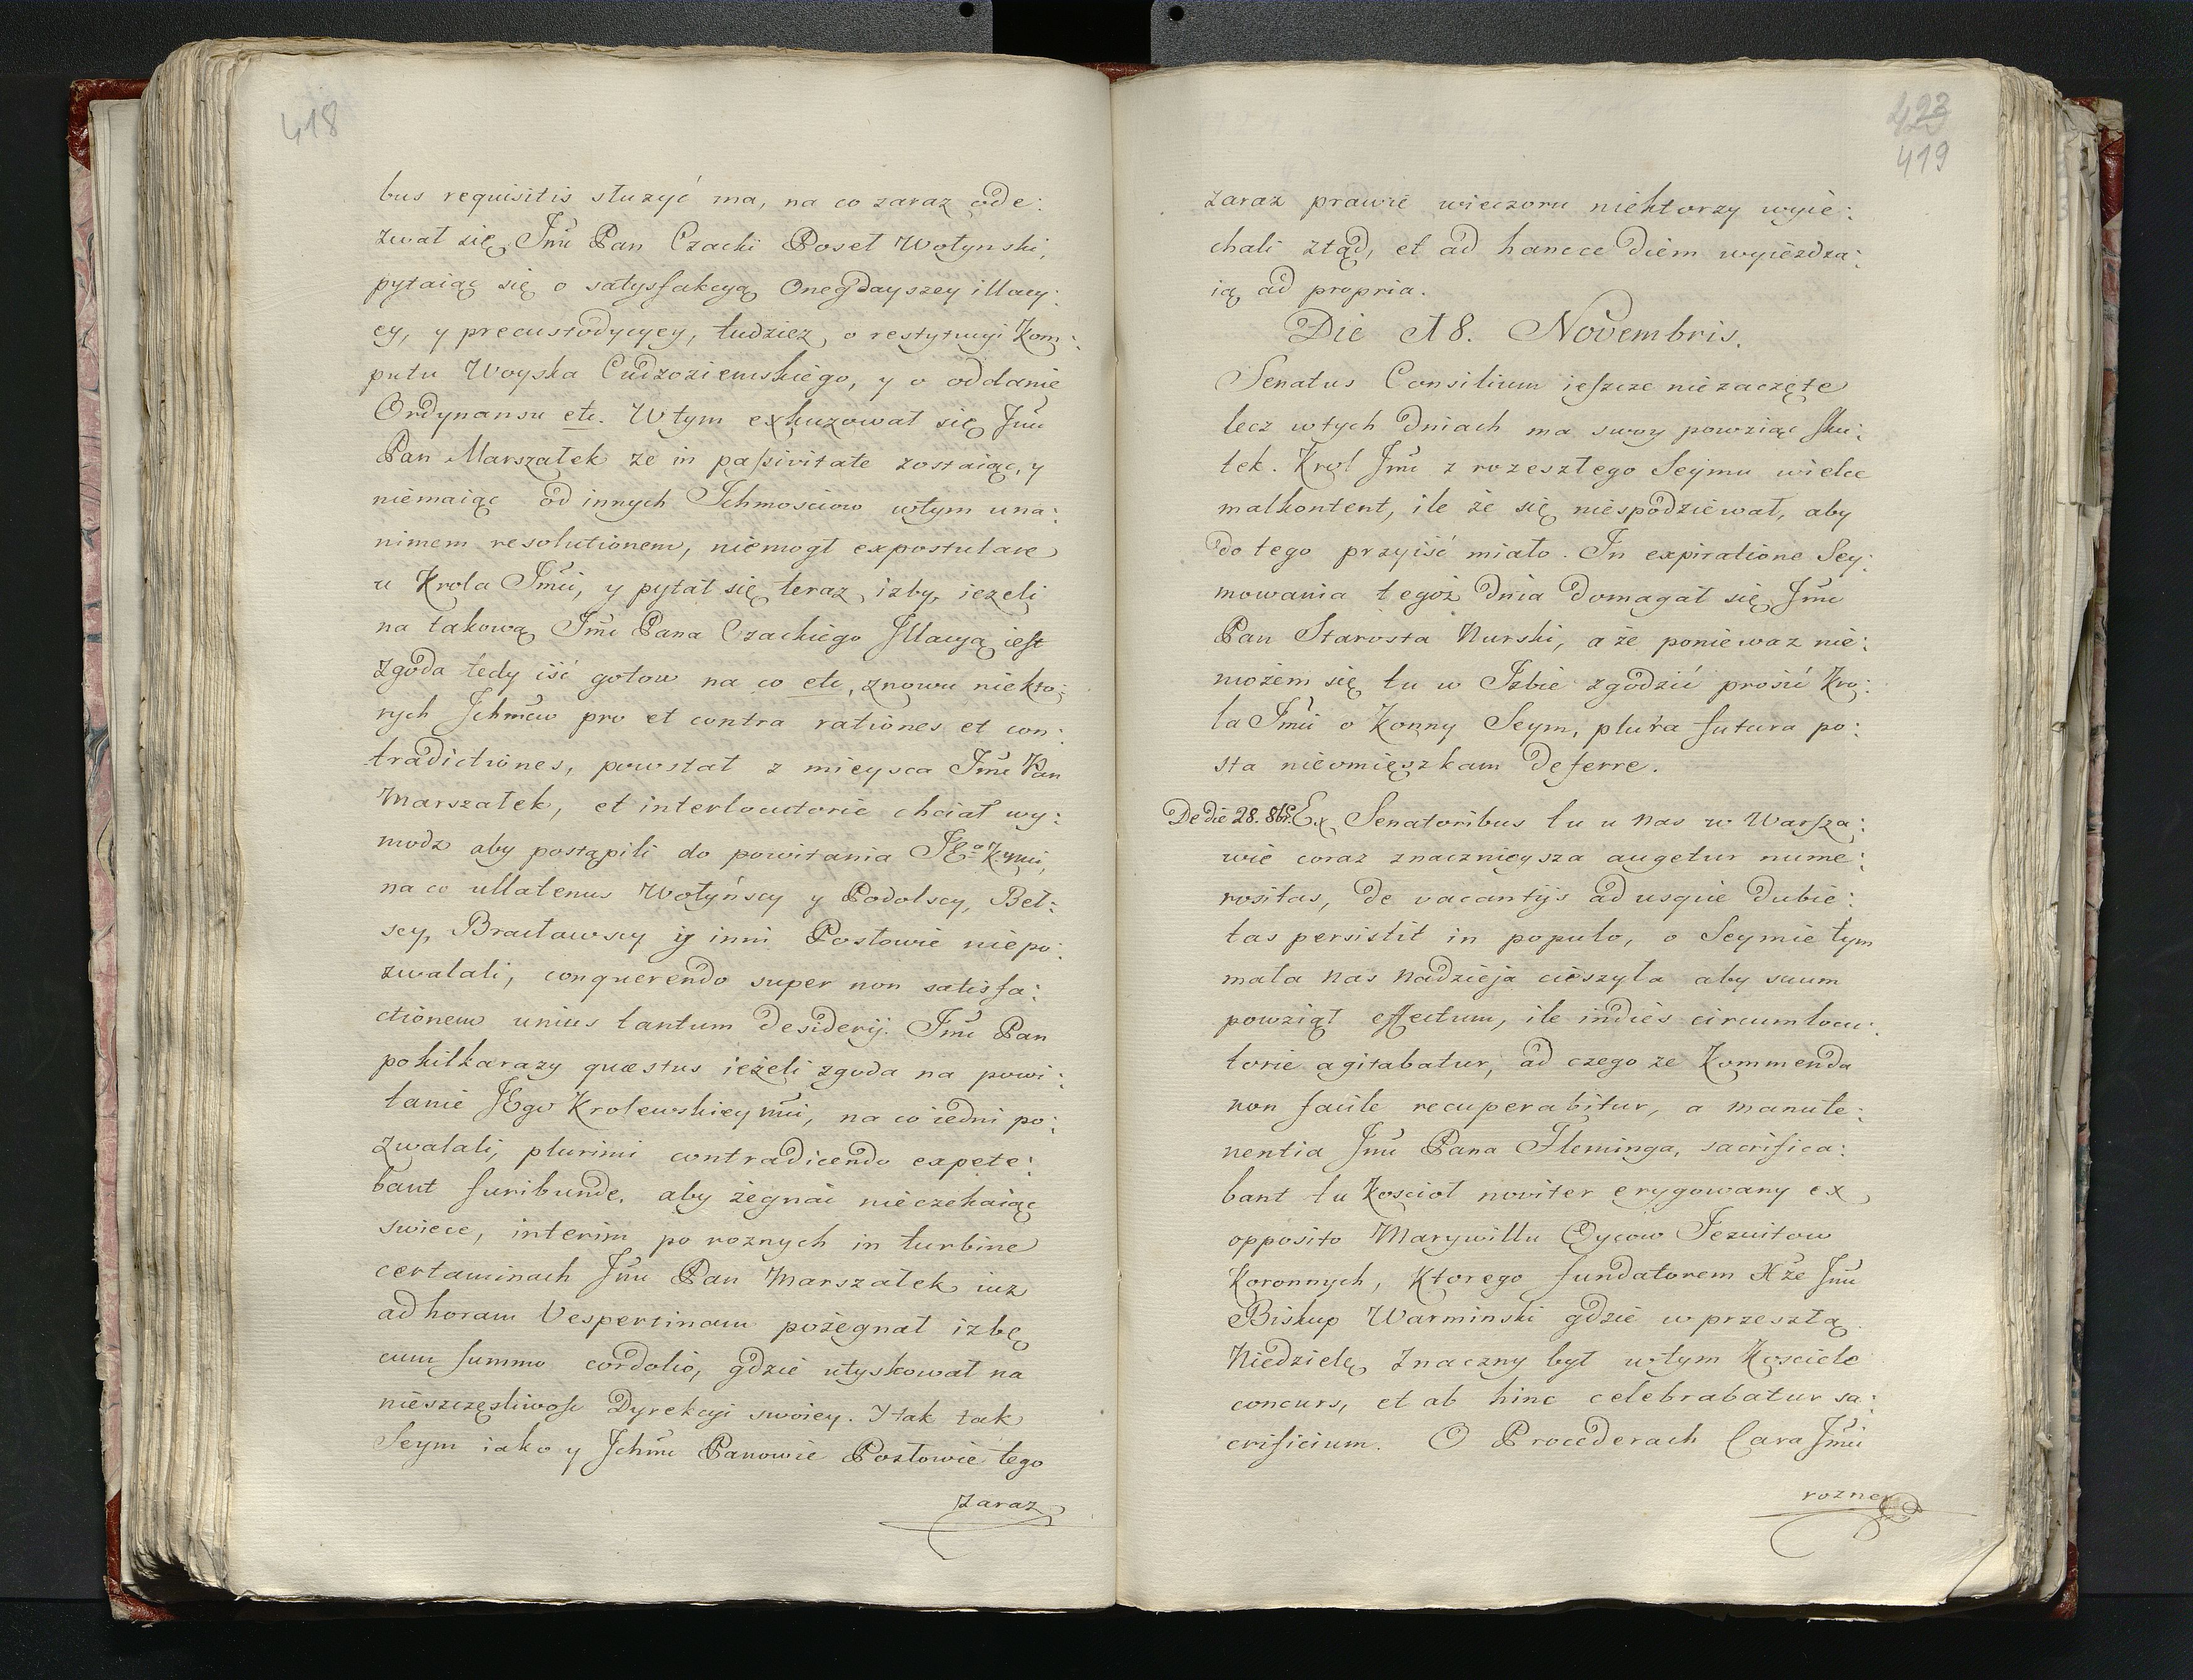 418
bus requisitis służyć ma, na co zaraz ode:
zwał się Jmć Pan Czacki Poseł Wołynski,
pytaiąc się o satysfakcyą Onegdayszey illacy:
cy, y precustodycyey, tudziez o restytucyi Kom:
putu Woyska Cudzoziemskiego, y o oddanie
Ordynansu etc. W tym exkuzował się Jmć
Pan Marszałek ze in passivitate zostaiąc, y
niemaiąc od innych Ichmościow wtym una:
nimem resolutionem, niemogł expostulare
u Krola Jmći, y pytał się teraz izby, iezeli
na takową Jmć Pana Czackiego Illacyą iest
zgoda tedy iść gotow na co etc, znowu niekto:
rych Ichmćiow pro et contra rationes et con:
tradictiones, powstał z mieysca Jmć Pan
Marszałek, et interlocutorie chciał wy:
modz aby postąpili do powitania JEo K. mći,
na co ullatenus Wołyńscy y Podolscy, Beł:
scy, Bracławscy y inni Posłowie niepo:
zwalali, conquerendo super non satisfa:
ctionem unius tantum desiderij. Jmć Pan
pokilkarazy quæstus ieżeli zgoda na powi:
tanie JEgo Krolewskiey mći, na co iedni po:
zwalali, plurimi contradicendo expete:
bant furibunde, aby żegnać nieczekaiąc
swiece, interim po roznych in turbine
certaminach Jmć Pan Marszałek iuz
ad horam Vespertinam pożegnał izbę
cum summo cordolio, gdzie utyskował na
nieszczęsliwość Dyrekcyi swoiey. Y tak tak
Seym iako y Ichmć Panowie Posłowie tego
zaraz
423
419
zaraz prawie wieczoru niektorzy wyie:
chali ztąd, et ad hancce diem wyieżdza:
ią ad propria.
Die 18. Novembris.
Senatus Consilium ieszcze niezaczęte
lecz wtych dniach ma swoy powziąć sku:
tek. Krol Jmć z rozeszłego Seymu wielce
malkontent, ile że się niespodziewał, aby
do tego przyiść miało. In expiratione Sey:
mowania tegoż dnia domagał się Jmć
Pan Starosta Nurski, a że poniewaz nie:
możem się tu w Izbie zgodzić prosić Kro:
la Jmći o Konny Seym, plura futura po:
sta nieomięszkam deferre.
De die 28. 8br. Ex Senatoribus tu u nas w Warsza:
wie coraz znacznieysza augetur nume:
rositas, de vacantijs ad usque dubie:
tas persistit in populo, o Seymie tym
mała nas nadzieja cieszyła aby suum
powziął effectum, ile indies circumlocu:
torie agitabatur, ad czego ze Kommenda
non facile recuperabitur, a manute:
nentia Jmć Pana Fleminga, sacrifica:
bant tu Kościoł noviter erygowany ex
opposito Marywillu Oycow Jezuitow
Koronnych, Ktorego fundatorem Xże Jmć
Biskup Warminski gdzie w przeszłą
Niedzielę znaczny był wtym Kościele
concurs, et ab hinc celebrabatur sa:
crificium. O Procederach Cara Jmći
rozne